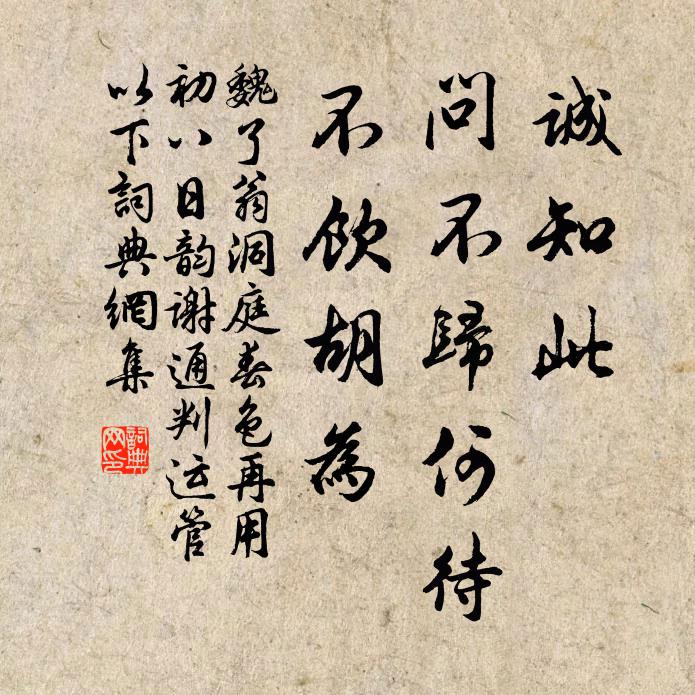 誠知此
問不歸何待
不飲胡為
魏了翁洞庭春色再用
初八日韵谢通判运管
以下詞典網集
詞典
网印